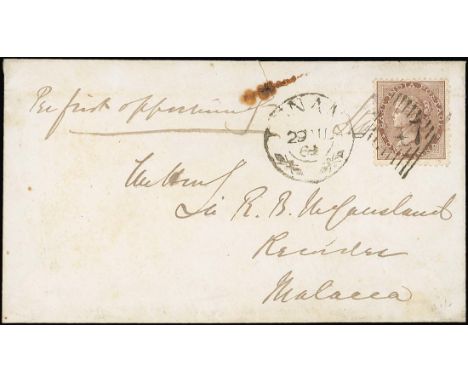 Per first opportunity
PENAN
29
INDIA POSTAGE
The Honbl
Sir R. B. McCausland
Recorder
Malacca